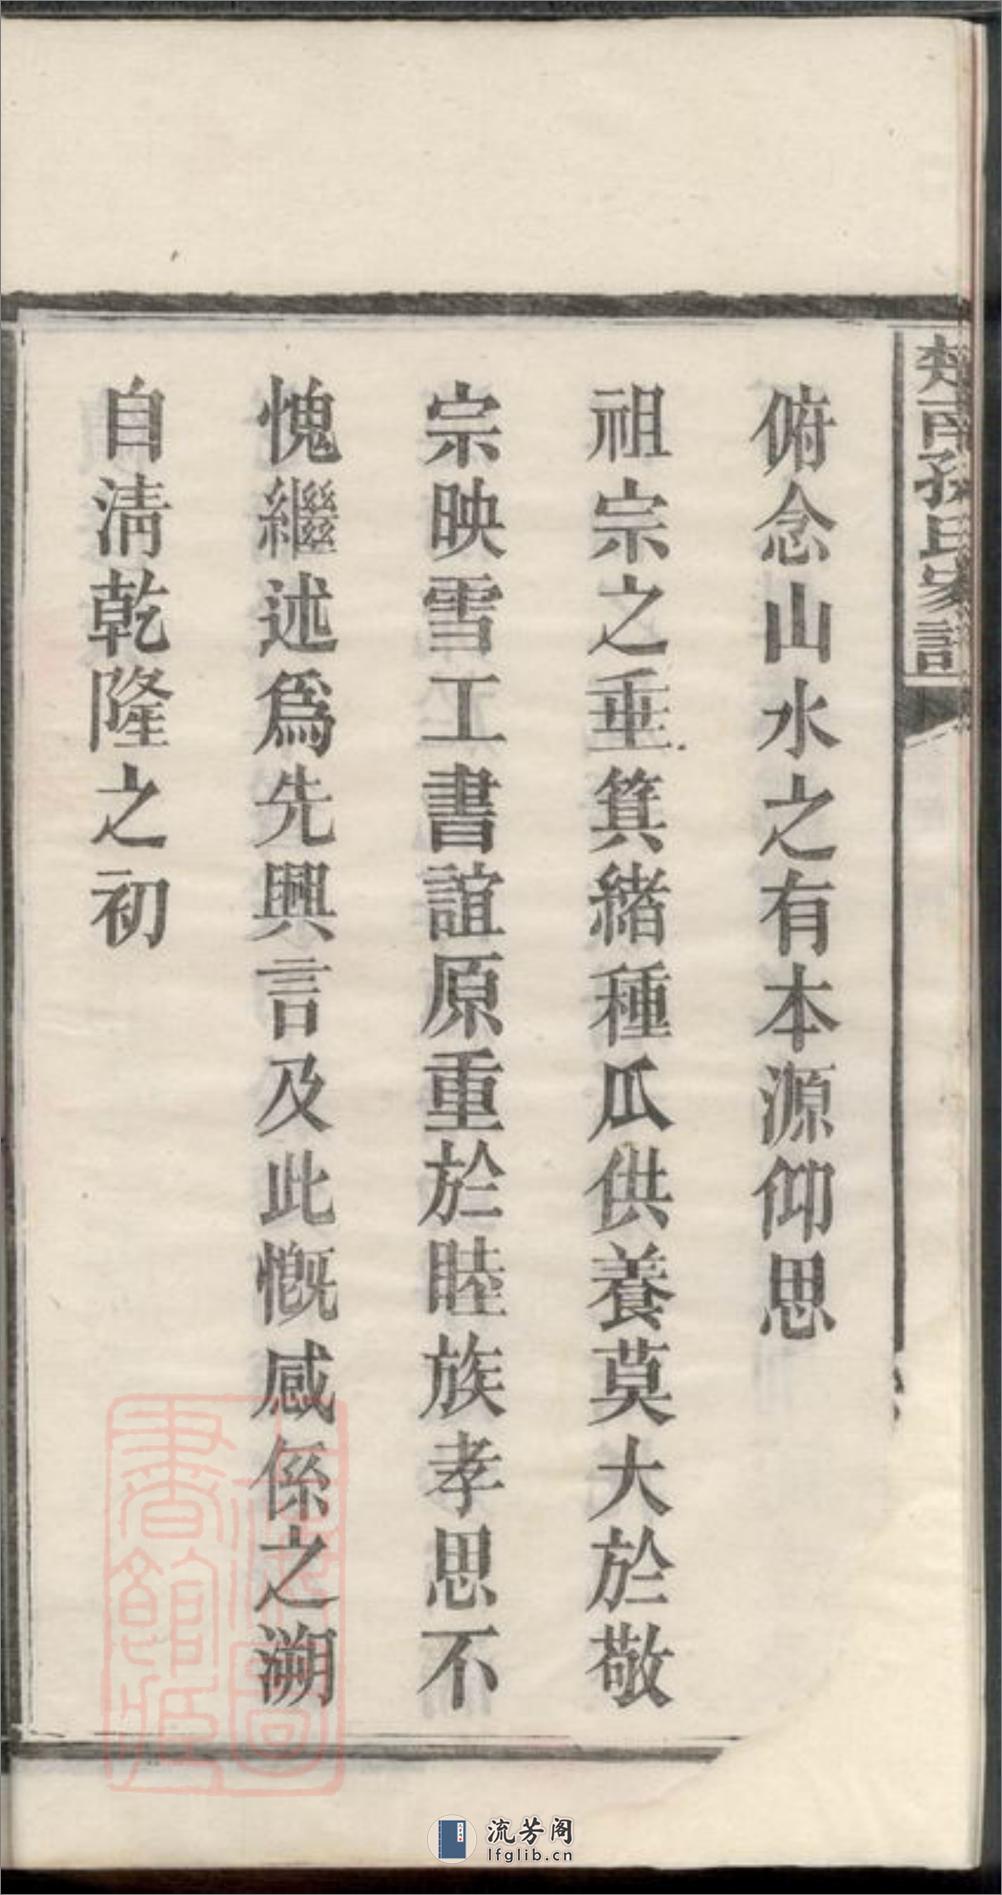 楚南孫氏家譜
俯念山水之有本源仰思
祖宗之垂箕緒種瓜供養莫大於敬
宗映雪工書誼原重於睦族孝思不
愧繼述爲先興言及此慨感係之溯
自清乾隆之初
上海圖書館藏
流芳阁
lfglib.cn